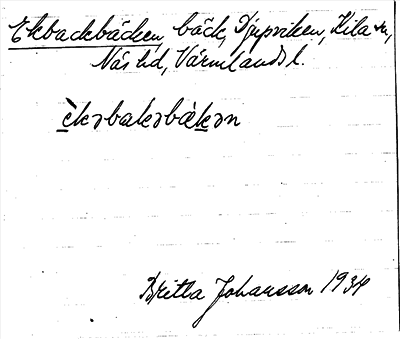 Ekbackbäcken, bäck, Djupviken, Kila sn,
Näs hd, Värmlands l.
èkəbakəbäkən
Britta Johansson 1934